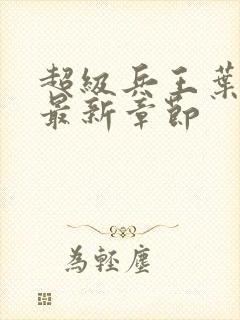 超級兵王葉
最新章節
為輕塵